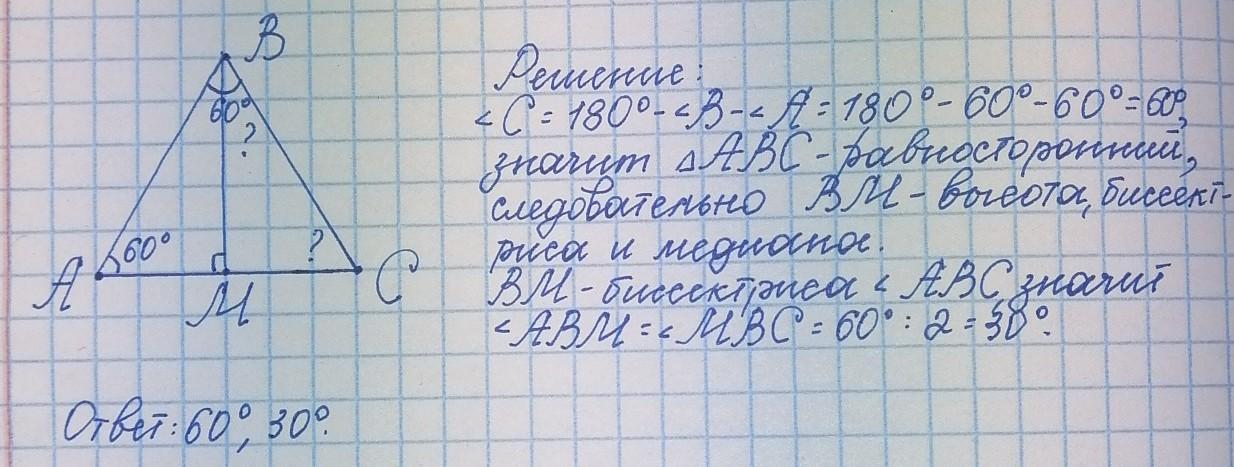 B
60°
?
A
60°
?
M
C
Решение:
∠C = 180° - ∠B - ∠A = 180° - 60° - 60° = 60°,
значит △ABC - равносторонний,
следовательно BM - высота, биссект-
риса и медиана.
BM - биссектриса ∠ABC, значит
∠ABM = ∠MBC = 60° : 2 = 30°.
Ответ: 60°, 30°.